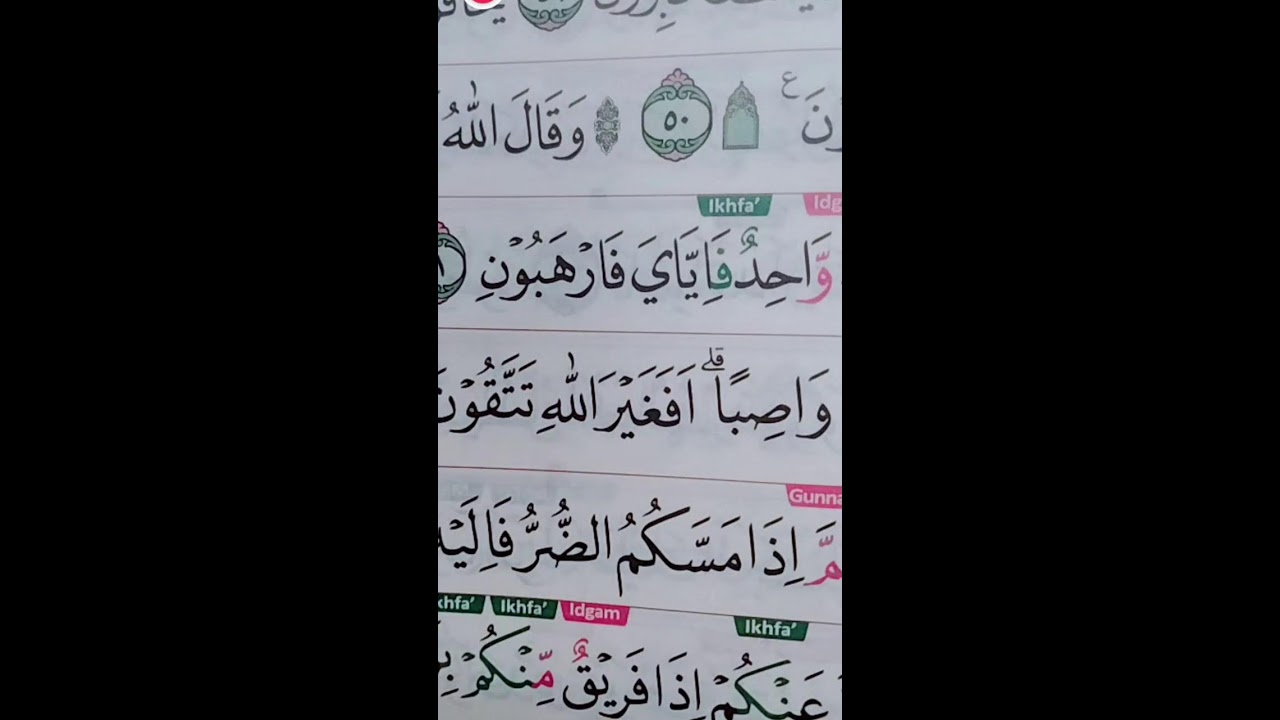 ۝٥٠ وَقَالَ اللّٰهُ
Ikhfa’
وَّاحِدٌ فَاِيَّايَ فَارْهَبُوْنِ
وَاصِبًاۗ اَفَغَيْرَ اللّٰهِ تَتَّقُوْنَ
مَّ اِذَا مَسَّكُمُ الضُّرُّ فَاِلَيْهِ
Ikhfa’ Idgam Ikhfa’
عَنْكُمْ اِذَا فَرِيْقٌ مِّنْكُمْ